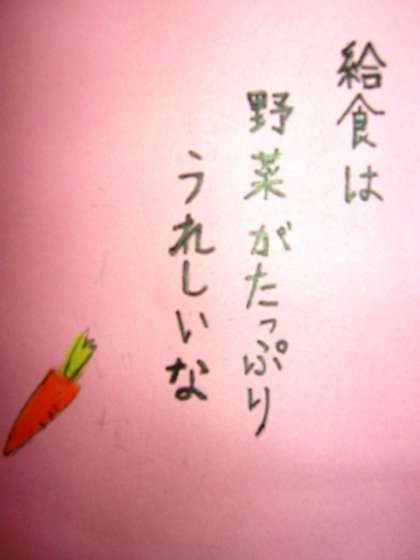 給食は
野菜がたっぷり
うれしいな